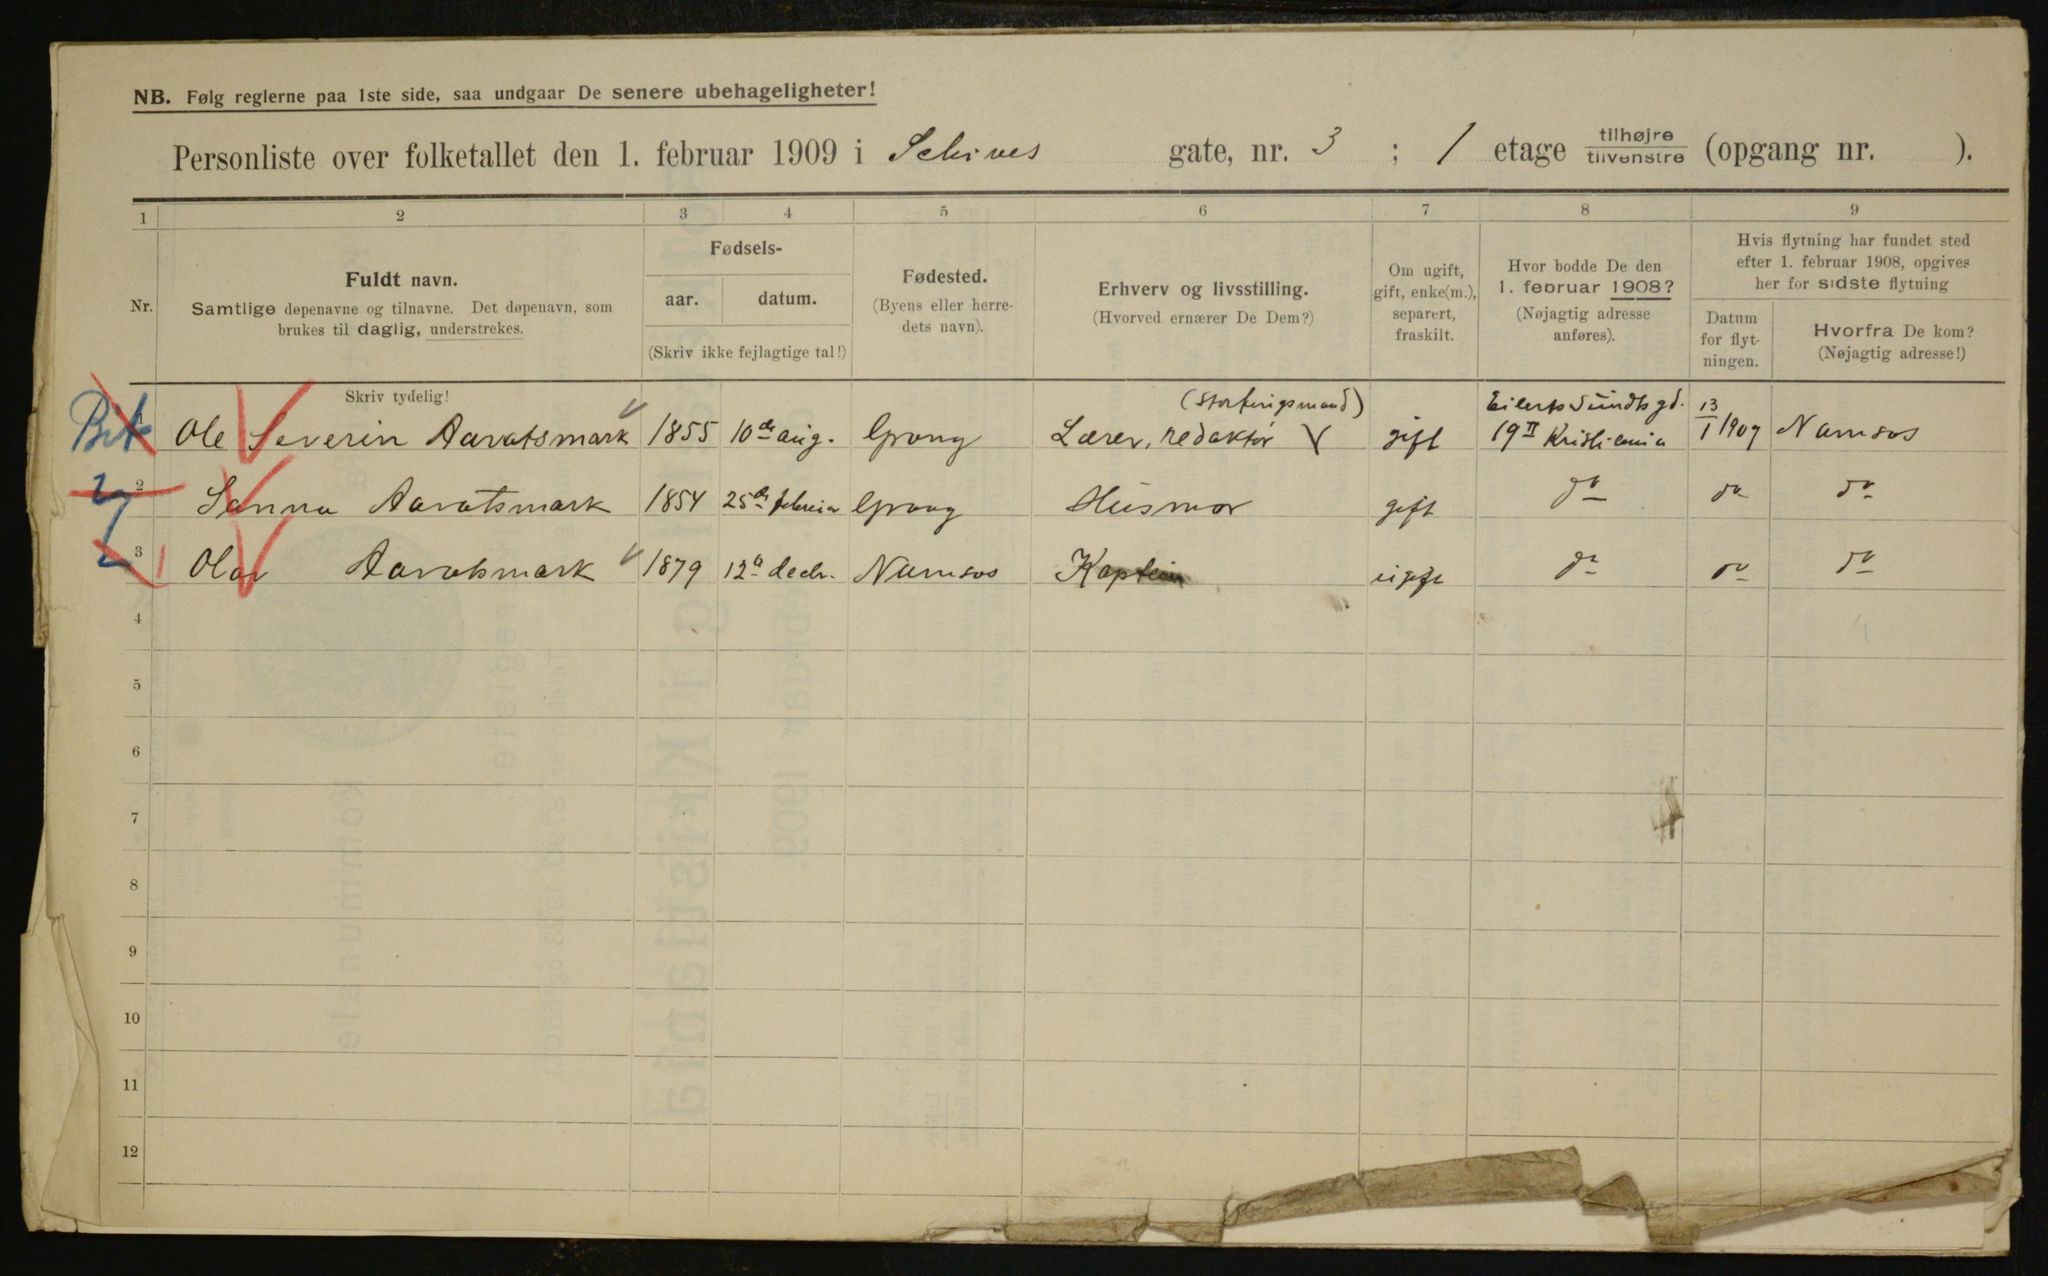 NB. Følg reglerne paa 1ste side, saa undgaar De senere ubehageligheter!
Personliste over folketallet den 1. februar 1909 i Schives gate, nr. 3 ; 1 etage tilhøjre/tilvenstre (opgang nr. ).
1 2 3 4 5 6 7 8 9
Nr.
Fuldt navn.
Samtlige døpenavne og tilnavne. Det døpenavn, som
brukes til daglig, understrekes.
Fødsels-
aar. datum.
(Skriv ikke fejlagtige tal!)
Fødested.
(Byens eller herre-
dets navn).
Erhverv og livsstilling.
(Hvorved ernærer De Dem?)
Om ugift,
gift, enke(m.),
separert,
fraskilt.
Hvor bodde De den
1. februar 1908?
(Nøjagtig adresse
anføres).
Hvis flytning har fundet sted
efter 1. februar 1908, opgives
her for sidste flytning
Datum
for flyt-
ningen.
Hvorfra De kom?
(Nøjagtig adresse!)
Skriv tydelig!
(Stortingsmand) Eilert Sundts gd.
1 Ole Severin Aavatsmark 1855 10de aug. Grong Lærer, redaktør gift 19 II Kristiania 13/1 1909 Namsos
2 Sanna Aavatsmark 1854 25de februar Grong Husmor gift do do do
3 Olav Aavatsmark 1879 12te decbr. Namsos Kaptein ugift do do do
4
5
6
7
8
9
10
11
12